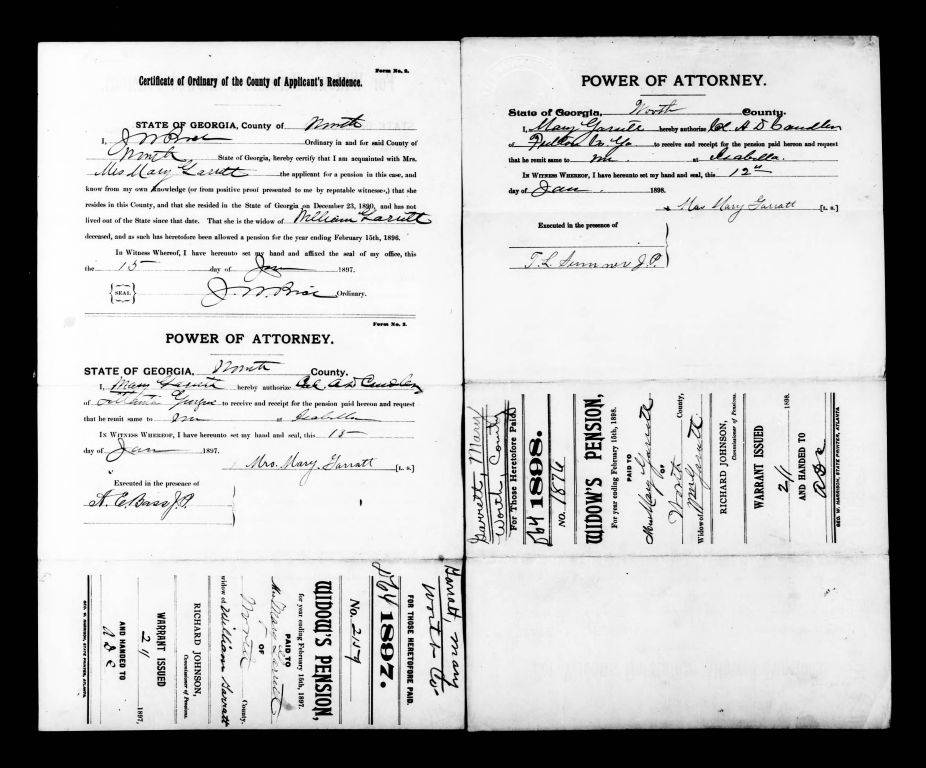 Form No. 2.
Certificate of Ordinary of the County of Applicant's Residence.
STATE OF GEORGIA, County of Worth
I, J W Price Ordinary in and for said County of
Worth State of Georgia, hereby certify that I am acquainted with Mrs.
Mrs Mary Garrett the applicant for a pension in this case, and
know from my own knowledge (or from positive proof presented to me by reputable witnesses,) that she
resides in this County, and that she resided in the State of Georgia on December 23, 1890, and has not
lived out of the State since that date. That she is the widow of William Garrett
deceased, and as such has heretofore been allowed a pension for the year ending February 15th, 1896.
In Witness Whereof, I have hereunto set my hand and affixed the seal of my office, this
the 15 day of Jan 1897.
SEAL J. W. Price Ordinary.
Form No. 3.
POWER OF ATTORNEY.
STATE OF GEORGIA, Worth County.
I, Mary Garrett hereby authorize Col. A D Candler
of Atlanta Georgia to receive and receipt for the pension paid hereon and request
that he remit same to me at Isabella
In Witness Whereof, I have hereunto set my hand and seal, this 15
day of Jan 1897.
Mrs. Mary. Garratt [L. S.]
Executed in the presence of
A. E. Bass J.P.
Garratt, Mary
Worth Co
FOR THOSE HERETOFORE PAID.
1897.
No. 2159
WIDOW'S PENSION,
for year ending February 15th, 1897.
PAID TO
Mrs Mary Garrett
OF
Worth County.
widow of William Garratt
RICHARD JOHNSON,
Commissioner of Pensions.
WARRANT ISSUED
2/1 1897.
AND HANDED TO
GEO. W. HARRISON, STATE PRINTER, ATLANTA.
POWER OF ATTORNEY.
State of Georgia, Worth County.
I, Mary Garrett hereby authorize Col. A D Candler
of Fulton Co. Ga to receive and receipt for the pension paid hereon and request
that he remit same to me at Isabella.
In Witness Whereof, I have hereunto set my hand and seal, this 12th
day of Jan. 1898.
Mrs Mary Garratt [L. S.]
Executed in the presence of
T. L. Sumner J.P.
Garrett, Mary
Worth County
For Those Heretofore Paid.
1898.
NO. 1876
WIDOW'S PENSION,
For year ending February 15th, 1898.
PAID TO
Mrs Mary Garrett
OF
Worth County,
Widow of Wm Garrett
RICHARD JOHNSON,
Commissioner of Pensions.
WARRANT ISSUED
2/1 1898.
AND HANDED TO
GEO. W. HARRISON, STATE PRINTER, ATLANTA